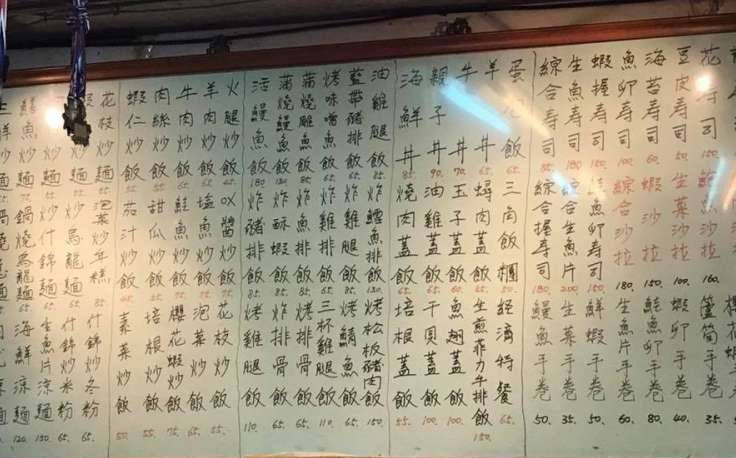 花壽司 150.
豆皮壽司 50.
海苔壽司 60.
魚卵壽司 100.
蝦握壽司 150.
生魚壽司 180.
綜合壽司 85.
蛋包飯 65.
羊肉丼 65.
牛肉丼 70.
親子丼 90.
海鮮丼 85.
油雞腿飯
藍帶豬排飯
烤味噌魚飯
蒲燒雕魚飯
蒲燒鰻魚飯 120.
活鰻魚飯 180.
火腿炒飯
羊肉炒飯
牛肉炒飯
肉絲炒飯
蝦仁炒飯
花枝炒麵
生菜沙拉 100.
蝦沙拉 150.
綜合沙拉 180.
鮭魚卵壽司 150.
綜合生魚片 200.
綜合握壽司 180.
三角飯糰
蟳肉蓋飯
玉子蓋飯
油雞蓋飯
燒肉蓋飯
炸鱈魚排飯
炸雞腿飯
炸雞排飯
炸魚排飯
炸酥蝦飯
炸豬排飯
XO醬炒飯
塩魚炒飯
鮭魚炒飯
甜瓜炒飯
茄汁炒飯
泡菜炒年糕
炒烏龍麵
炒什錦麵
鍋燒烏龍麵
蘆筍手卷 35.
蝦卵手卷 40.
鮭魚卵手卷 80.
生魚片手卷 60.
鮮蝦手卷 50.
手卷 35.
鰻魚手卷 50.
經濟特餐 65.
生煎菲力牛排飯 150.
魚翅蓋飯 100.
干貝蓋飯 100.
培根蓋飯 55.
烤松板豬肉飯 150.
烤鯖魚飯 65.
三杯雞腿飯 110.
烤排骨飯 65.
炸排骨飯 65.
烤雞腿飯 110.
花枝炒飯 55.
泡菜炒飯 55.
櫻花蝦炒飯 75.
培根炒飯 55.
素菜炒飯 50.
什錦冬粉 65.
什錦米粉 65.
生魚片涼麵 150.
海鮮涼麵 120.